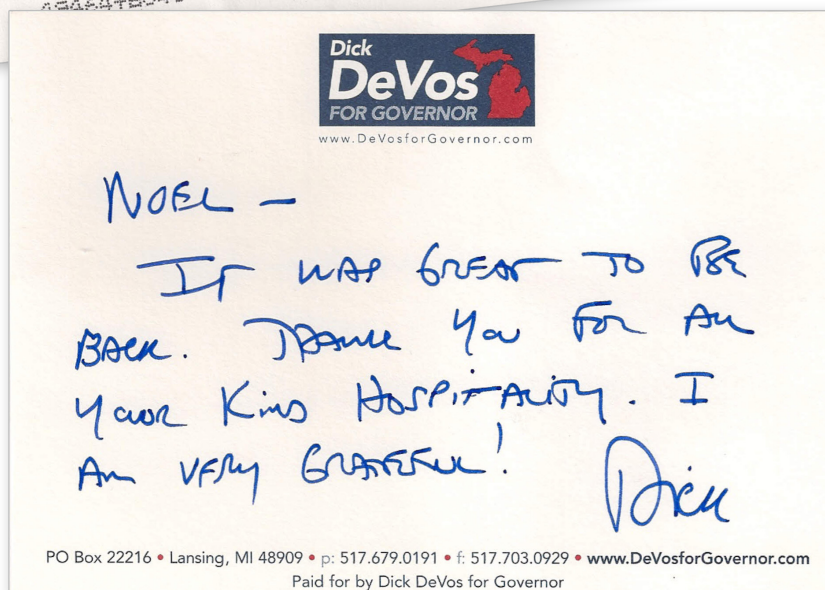 Dick
DeVos
FOR GOVERNOR
www.DeVosforGovernor.com
NOEL —
IT WAS GREAT TO BE
BACK. THANK YOU FOR ALL
YOUR KIND HOSPITALITY. I
AM VERY GRATEFUL!
Dick
PO Box 22216 • Lansing, MI 48909 • p: 517.679.0191 • f: 517.703.0929 • www.DeVosforGovernor.com
Paid for by Dick DeVos for Governor